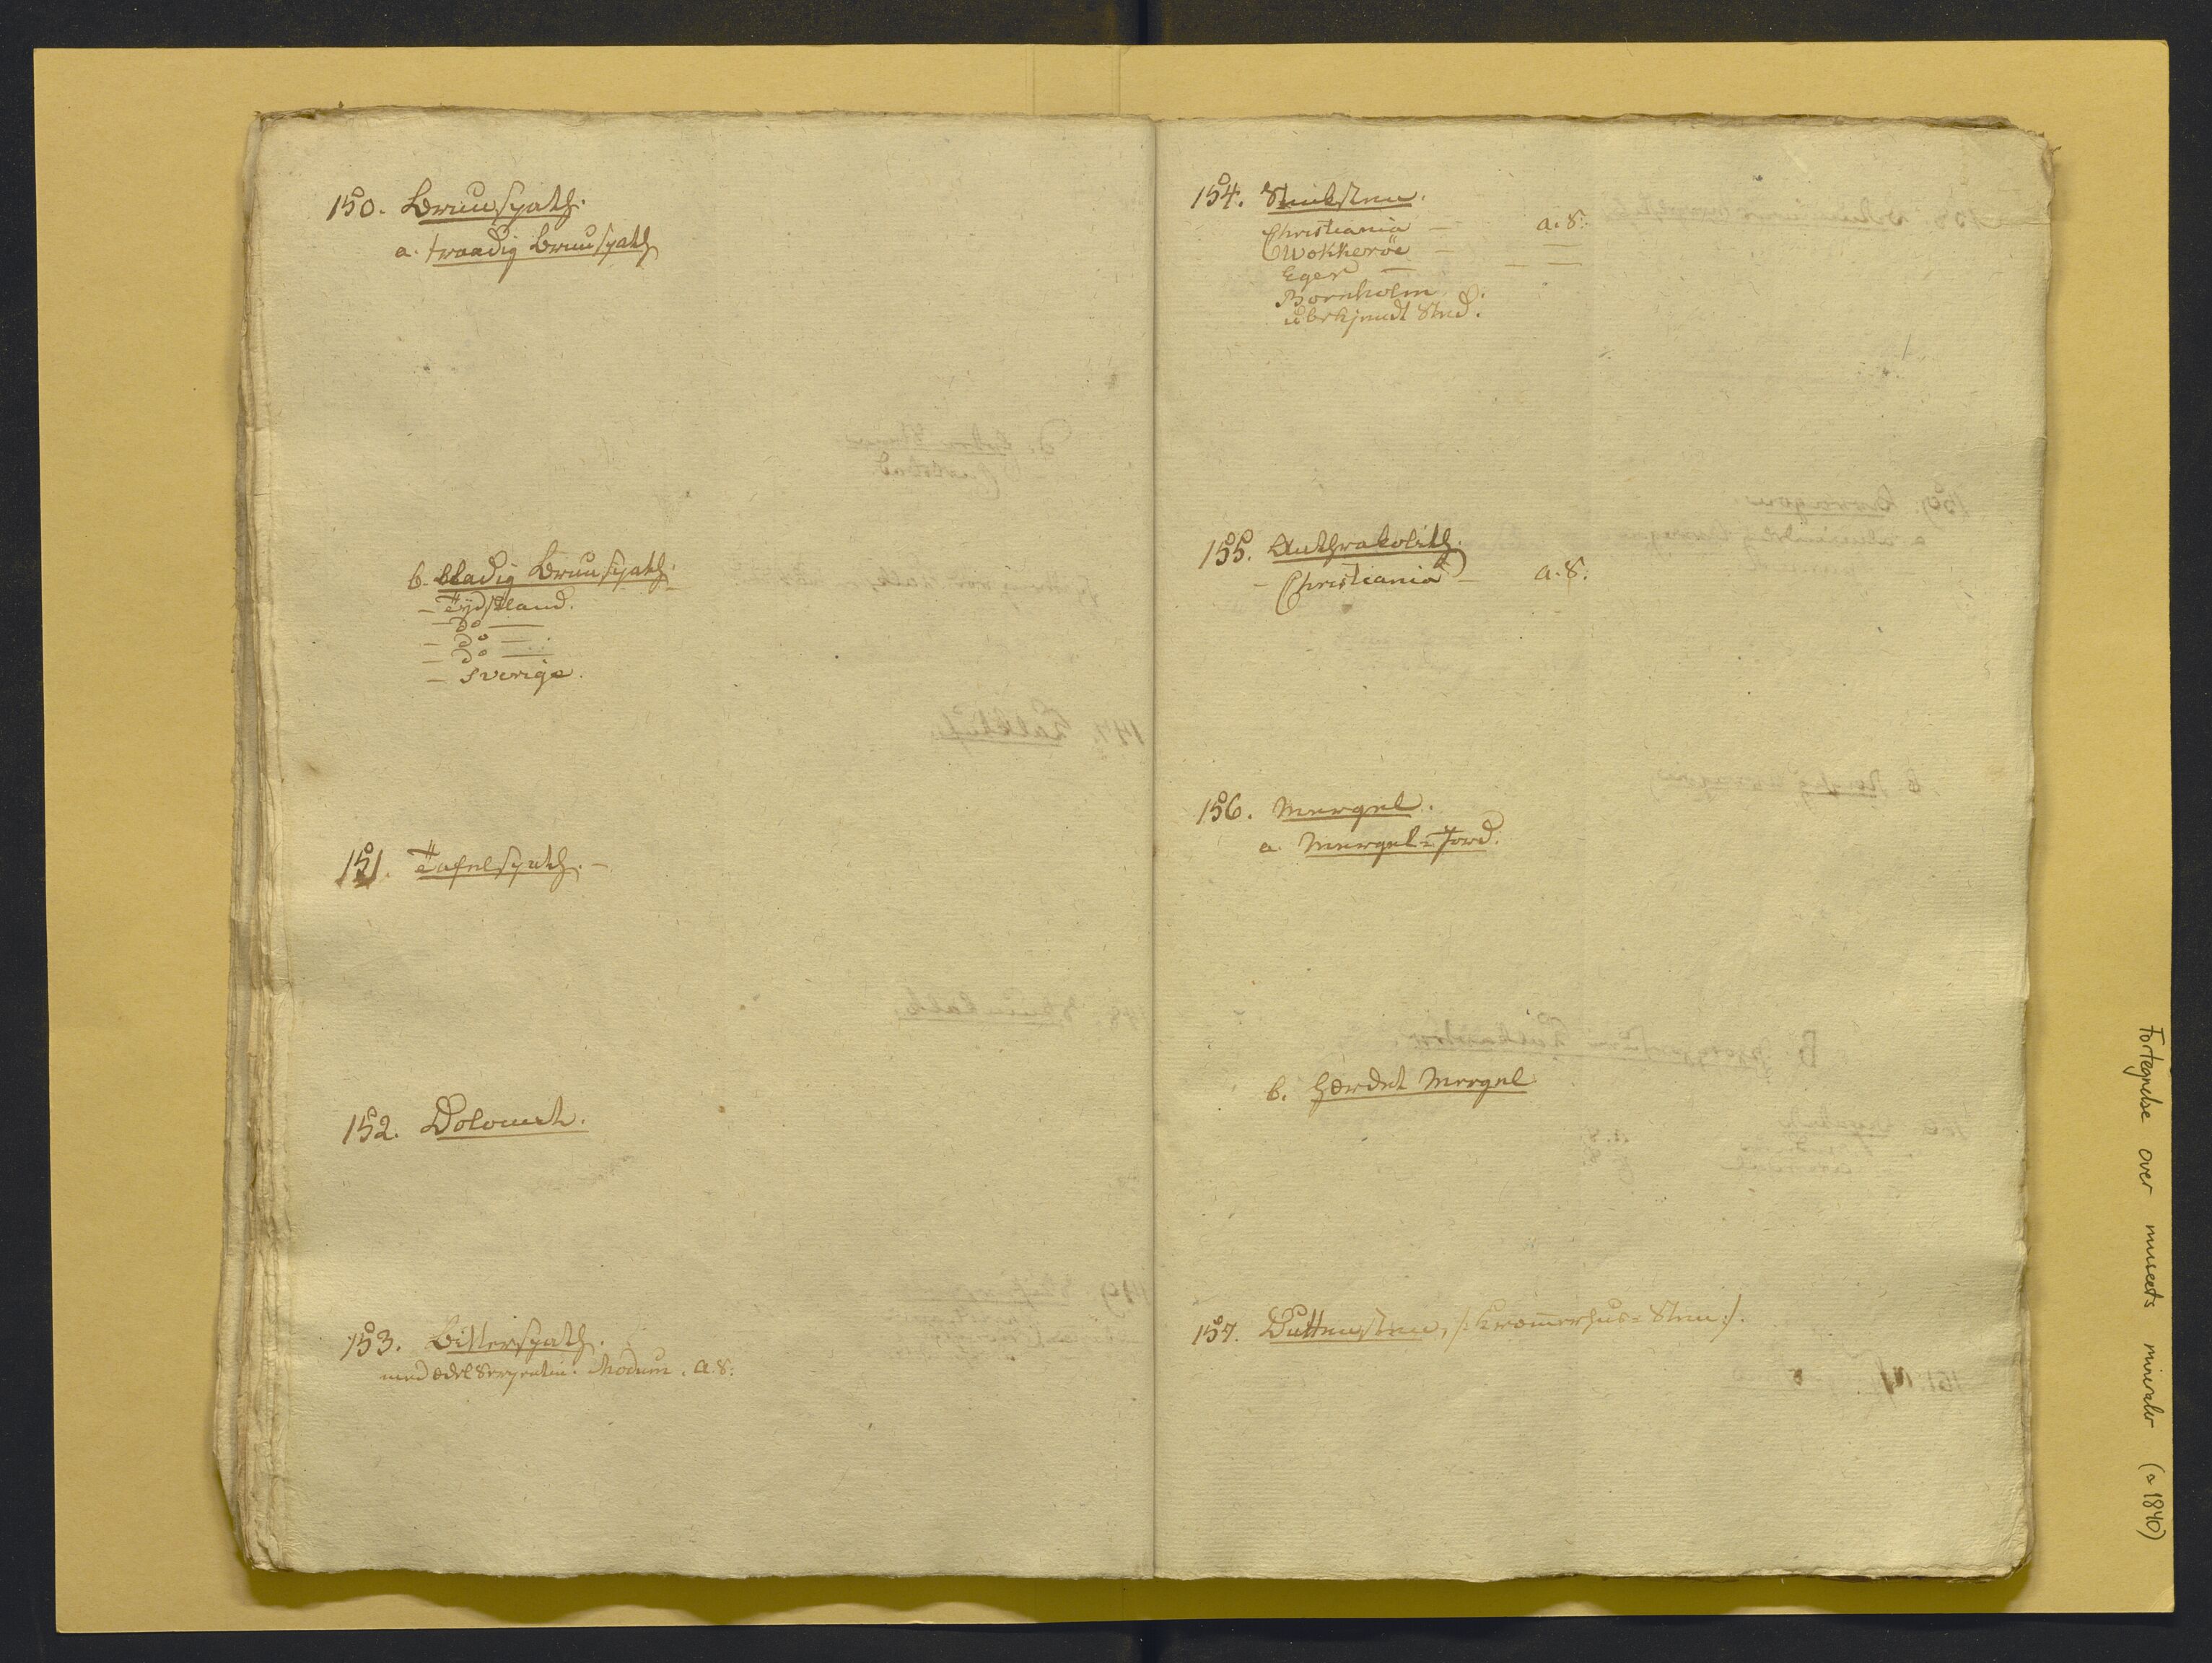 150. Bruunspath.
a. traadig Bruunspath
b. bladig Bruunspath.
– Tydskland.
– do —
– do —
– do —
– Sverige.
151. Tafelspath. –
152. Dolomit.
153. Bitterspath.
med ædel Serpentin. Modum. a.S:
154. Stinksteen.
Christiania — a.S:
Wokkerøe — —
Eger — — —
Bornholm.
ubekjendt Sted.
155. Anthrakolith.
– Christiania – a.S:
156. Mergel.
a. Mergel=Jord.
b. hærdet Mergel
157. Duttensteen, /: Kræmmerhus=Steen :/.
Fortegnelse over museets mineraler (ca 1840)